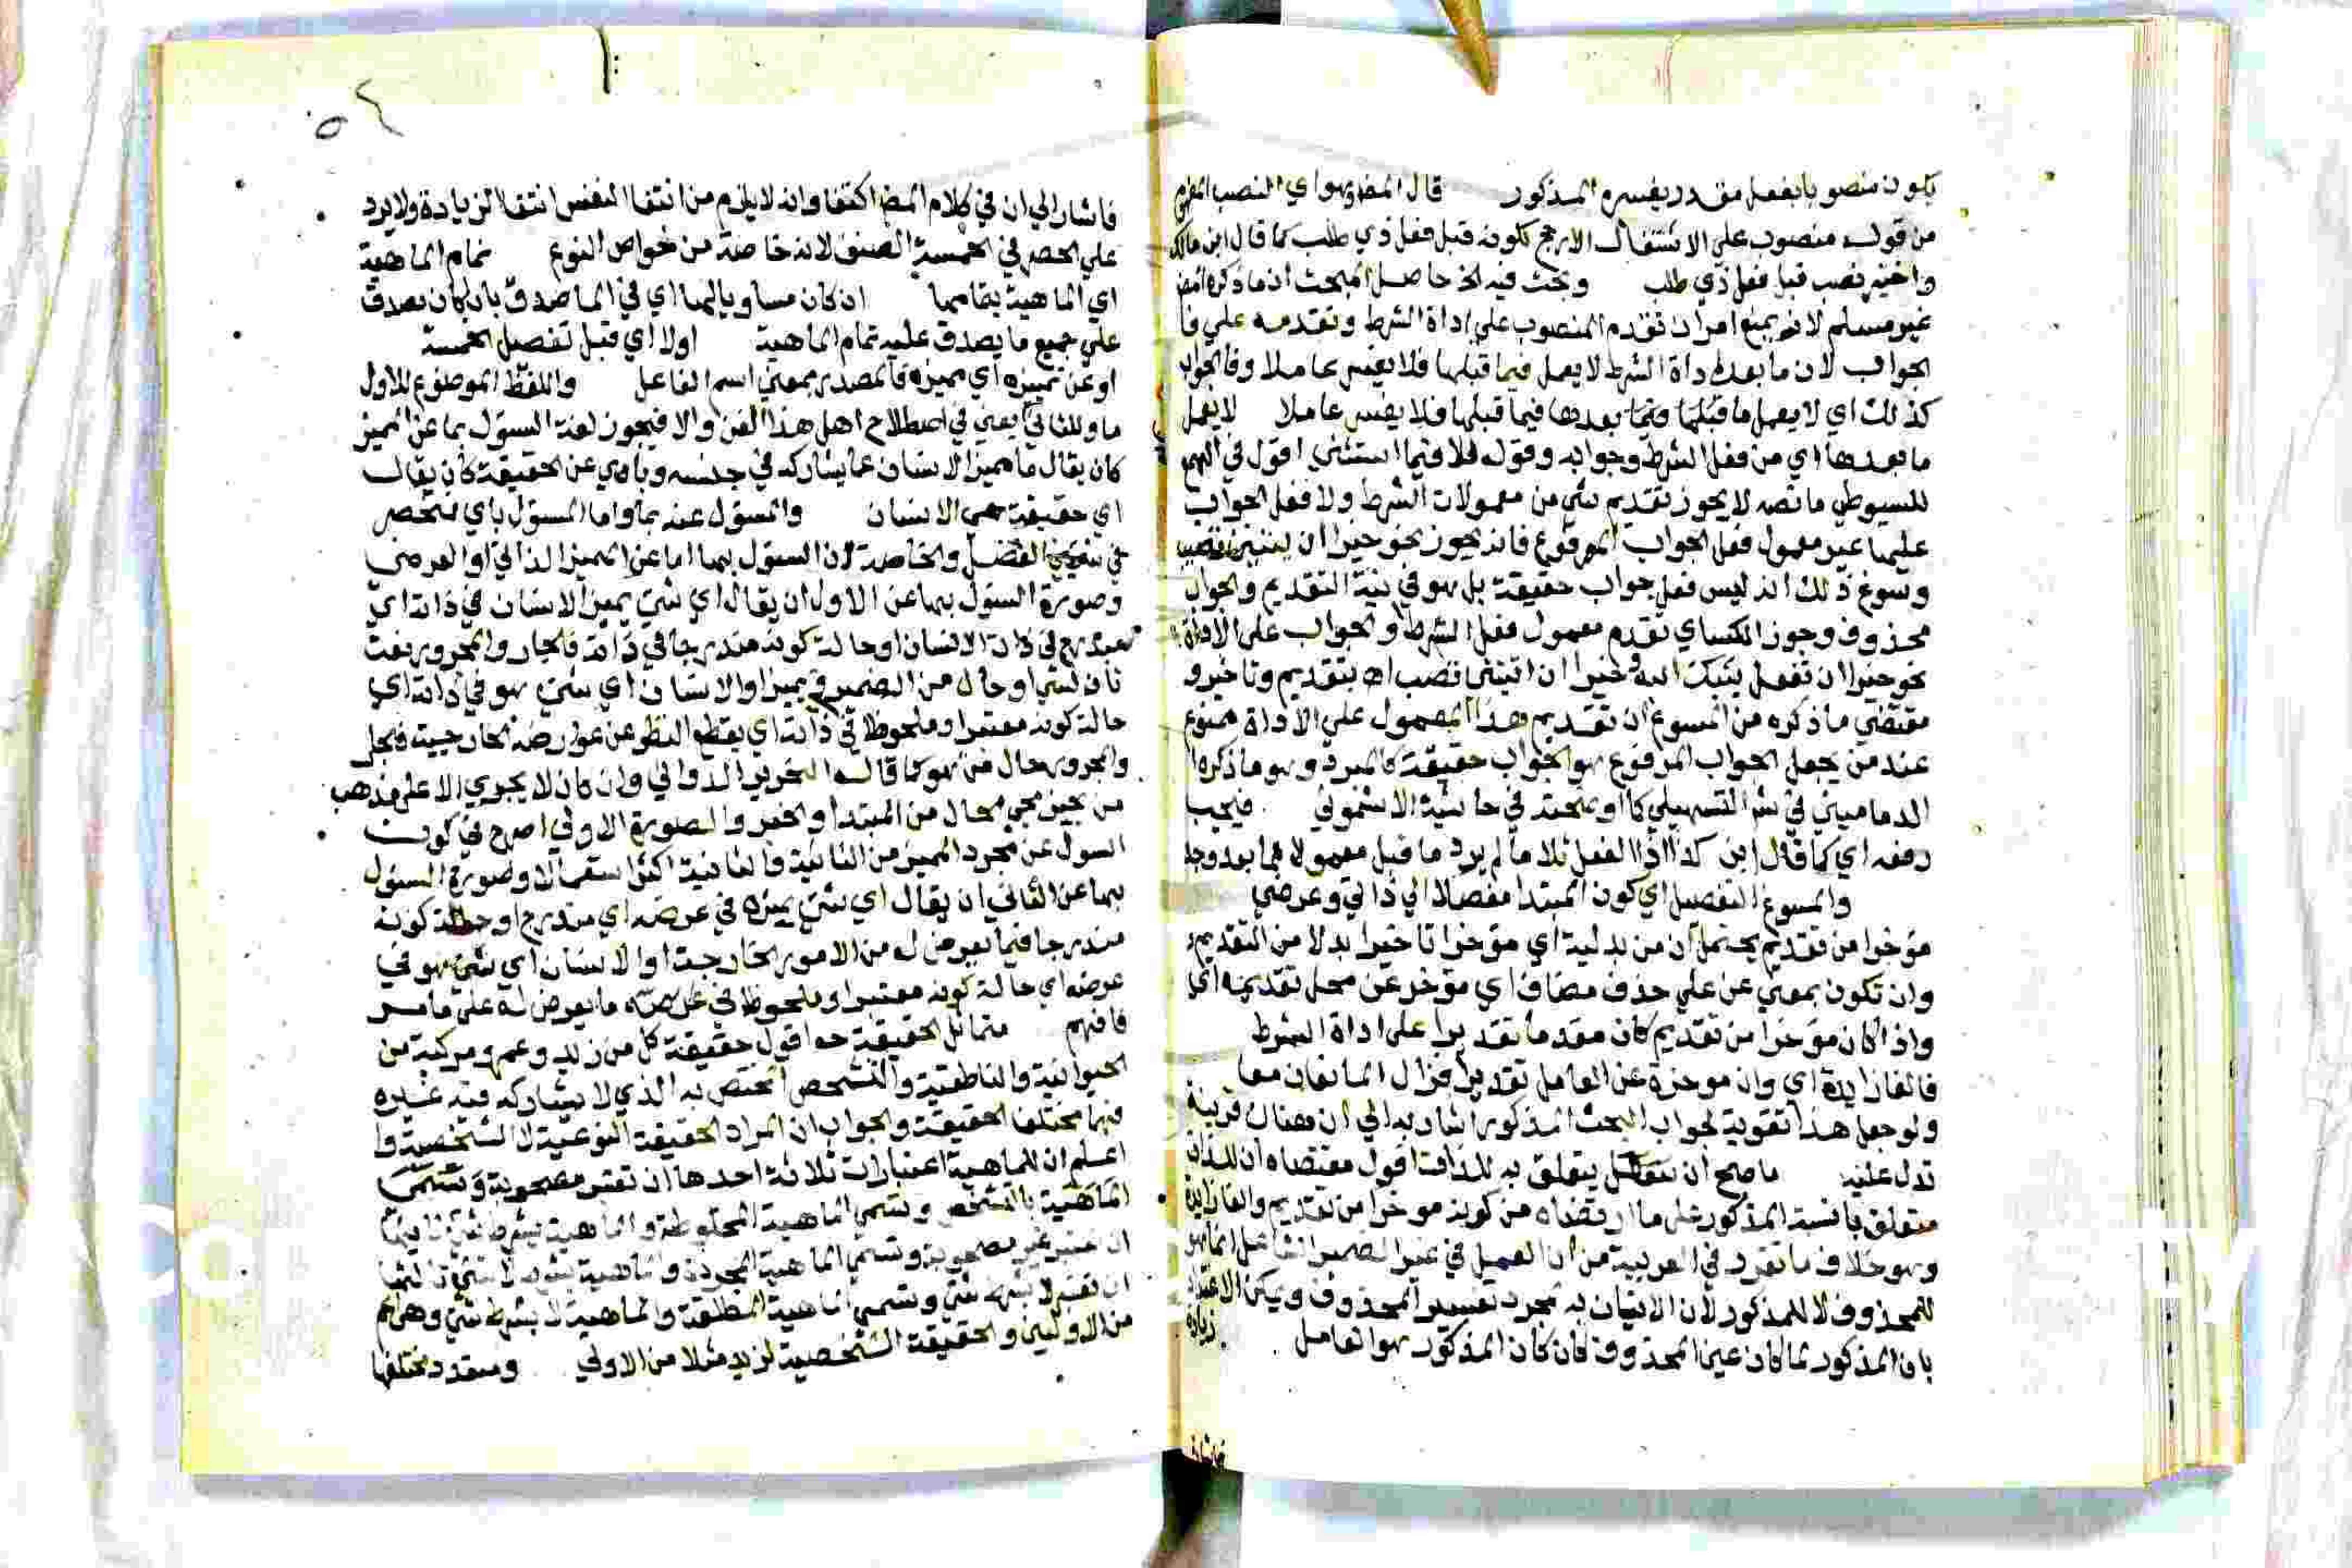 يكون منصوبا بفعل مقدر يفسره المذكور قال المص وهو اي النصب المفهوم
من قوله منصوب على الاشتغال الارجح لكونه قبل فعل ذي طلب كما قال ابن مالك
واختير نصب قبل فعل ذي طلب وبحث فيه الخ حاصل المبحث ان ما ذكره المص
غير مسلم لانه يمنع امران تقدم المنصوب على اداة الشرط وتقدمه على فا
الجواب لان ما بعد اداة الشرط لا يعمل فيما قبلها فلا يفسر عاملا وفا الجواب
كذلك اي لا يعمل ما بعدها فيما قبلها فلا يفسر عاملا لا يعمل
ما بعدها اي من فعل الشرط وجوابه وقوله فلا فيما استثنى اقول في الهمع
للسيوطي ما نصه لا يجوز تقديم شي من معمولات الشرط ولا فعل الجواب
عليها غير معمول فعل الجواب المرفوع فانه يجوز نحو خيرا ان يتنى تصب
وسوغ ذلك انه ليس فعل جواب حقيقة بل هو في نية التقديم والجواب
محذوف وجوز الكساي تقدم معمول فعل الشرط والجواب على الاداة
نحو خيرا ان تفعل يثبك الله وخيرا ان اتيتنى تصب اه بتقديم وتاخير و
مقتضى ما ذكره من المسوغ ان تقديم هذا المعمول على الاداة ممنوع
عند من يجعل الجواب المرفوع هو الجواب حقيقة كالمبرد وهو ما ذكره
الدماميني في شر التسهيل كما اوضحته في حاشية الاشموني فيجب
رفعه اي كما قال ابن كذا اذا الفعل تلا ما لم يرد ما قبل معمولا لما بعد وجد
والمسوغ التفصيل اي كون المبتدا مفصلا الي ذاتي وعرضي
موخرا من تقديم يحتمل ان من بدلية اي موخرا تاخيرا بدلا من التقديم
وان تكون بمعني عن علي حذف مضاف اي موخر عن محل تقديمه اي
واذا كان موخرا من تقديم كان مقدما تقديرا على اداة الشرط
فالفا زايدة اي وان موخرة عن العامل تقديرا فزال المانعان معا
ولو جعل هذا تقوية لجواب البحث المذكور اشار به الي ان هناك قرينة
تدل عليه ما صح ان يتعلق به للذات اقول مقتضاه ان للذات
متعلق بانسبة المذكور على ما ارتضاه من كونه موخرا من تقديم والفا زايدة
وهو خلاف ما تقرر في العربية من ان العمل في غير الضمير الشاغل انما هو
للمحذوف لا للمذكور لان الاتيان به لمجرد تفسير المحذوف ويمكن الاعتذار
بان المذكور لما كان عين المحذوف كان كان المذكور هو العامل
زيادة
فاشار
فاشار الي ان في كلام المص اكتفا وانه لا يلزم من انتفا النفس انتفا الزيادة ولا يرد
علي الحصر في الخمسة الصنف لانه خاصة من خواص النوع تمام الماهية
اي الماهية بتمامها ان كان مساويا لها اي في الماصدق بان كان يصدق
علي جميع ما يصدق عليه تمام الماهية اولا اي قبل تفصيل الخمسة
او عن تمييزه اي مميزه فالمصدر بمعني اسم الفاعل واللفظ الموضوع للاول
ما وللثاني اي يعني في اصطلاح اهل هذا الفن والا فيجوز لغة السؤل بما عن المميز
كان يقال ما مميز الانسان عما يشاركه في جنسه وباي عن الحقيقة كان يقال
اي حقيقة هي الانسان والمسؤل عنه بما واما المسؤل باي فنحصر
في الفصل والخاصة لان السؤل بها اما عن المميز الذاتي او العرضي
وصورة السؤل بها عن الاول ان يقال اي شي يميز الانسان في ذاته اي
مندرج في ذات الانسان او حالة كونه مندرجا في ذاته فالجار والمجرور نعت
ثان لشي او حال من الضمير في يميز او الانسان اي شي هو في ذاته اي
حالة كونه معتبرا وملحوظا في ذاته اي بقطع النظر عن عوارضه الخارجية فالجار
والمجرور حال من هو كما قاله النحرير الدواني وان كان لا يجري الا على مذهب
من يجيز مجي الحال من المبتدا والخبر والصورة الاولي اصرح في كون
السول عن مجرد المميز من الثانية والثانية اكثر استعمالا وصورة السؤل
بها عن الثاني ان يقال اي شي يميزه في عرضه اي مندرج او حالة كونه
مندرجا فيما يعرض له من الامور الخارجة او الانسان اي شي هو في
عرضه اي حالة كونه معتبرا وملحوظا في عرضه ما يعرض له على ما مر
فافهم متماثل الحقيقة اقول حقيقة كل من زيد وعمرو مركبة من
الحيوانية والناطقية والتشخص المختص به الذي لا يشاركه فيه غيره
فهما مختلفا الحقيقة والجواب ان المراد الحقيقة النوعية لا الشخصية وا
اعلم ان للماهية اعتبارات ثلاثة احدها ان تعتبر مصحوبة وتسمى
الماهية بالتشخص وتسمي الماهية المخلوطة والماهية بشرط شي ثانيها
ان تعتبر غير مصحوبة وتسمي الماهية المجردة والماهية بشرط لا شي ثالثها
ان تعتبر لا بشرط شي وتسمي الماهية المطلقة والماهية لا بشرط شي وهي اعم
من الاوليين والحقيقة الشخصية لزيد مثلا من الاولي ومتعدد مختلفها